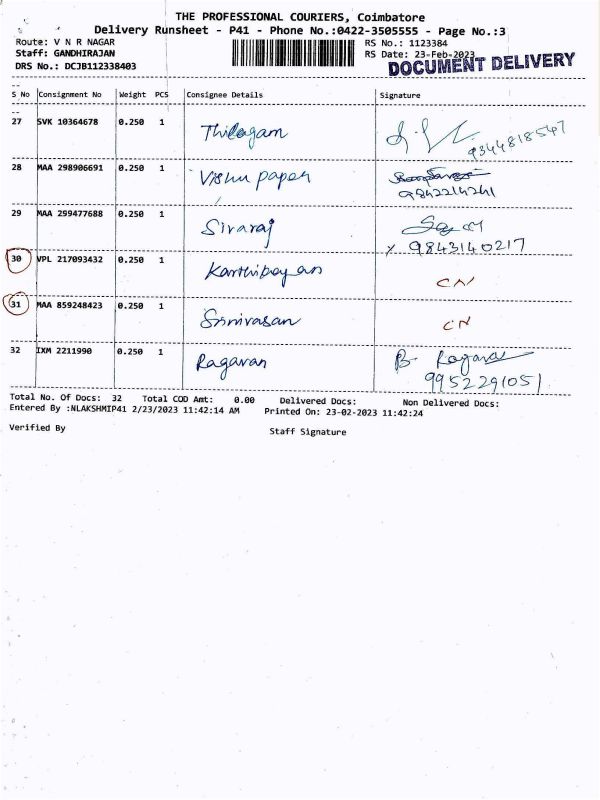 THE PROFESSIONAL COURIERS, Coimbatore
Delivery Runsheet - P41 - Phone No.:0422-3505555 - Page No.:3
Route: V N R NAGAR RS No.: 1123384
Staff: GANDHIRAJAN RS Date: 23-Feb-2023
DRS No.: DCJB112338403 DOCUMENT DELIVERY
S No Consignment No Weight PCS Consignee Details Signature
27 SVK 10364678 0.250 1 Thilagam 9344818547
28 MAA 298906691 0.250 1 Vishnu paper 9842214241
29 MAA 299477688 0.250 1 Sivaraj 9843140217
30 VPL 217093432 0.250 1 Karthikeyan CN
31 MAA 859248423 0.250 1 Srinivasan CN
32 IXM 2211990 0.250 1 Ragavan B. Ragava
9952291051
Total No. Of Docs: 32 Total COD Amt: 0.00 Delivered Docs: Non Delivered Docs:
Entered By :NLAKSHMIP41 2/23/2023 11:42:14 AM Printed On: 23-02-2023 11:42:24
Verified By Staff Signature